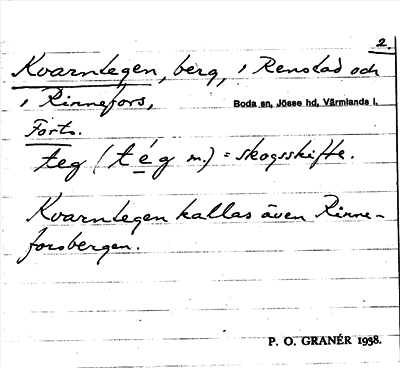 2.
Kvarntegen, berg, i Renstad och
i Rinnefors, Boda sn, Jösse hd, Värmlands l.
Forts.
teg (tég m.) = skogsskifte.
Kvarntegen kallas även Rinne-
forsbergen.
P. O. GRANÉR 1938.